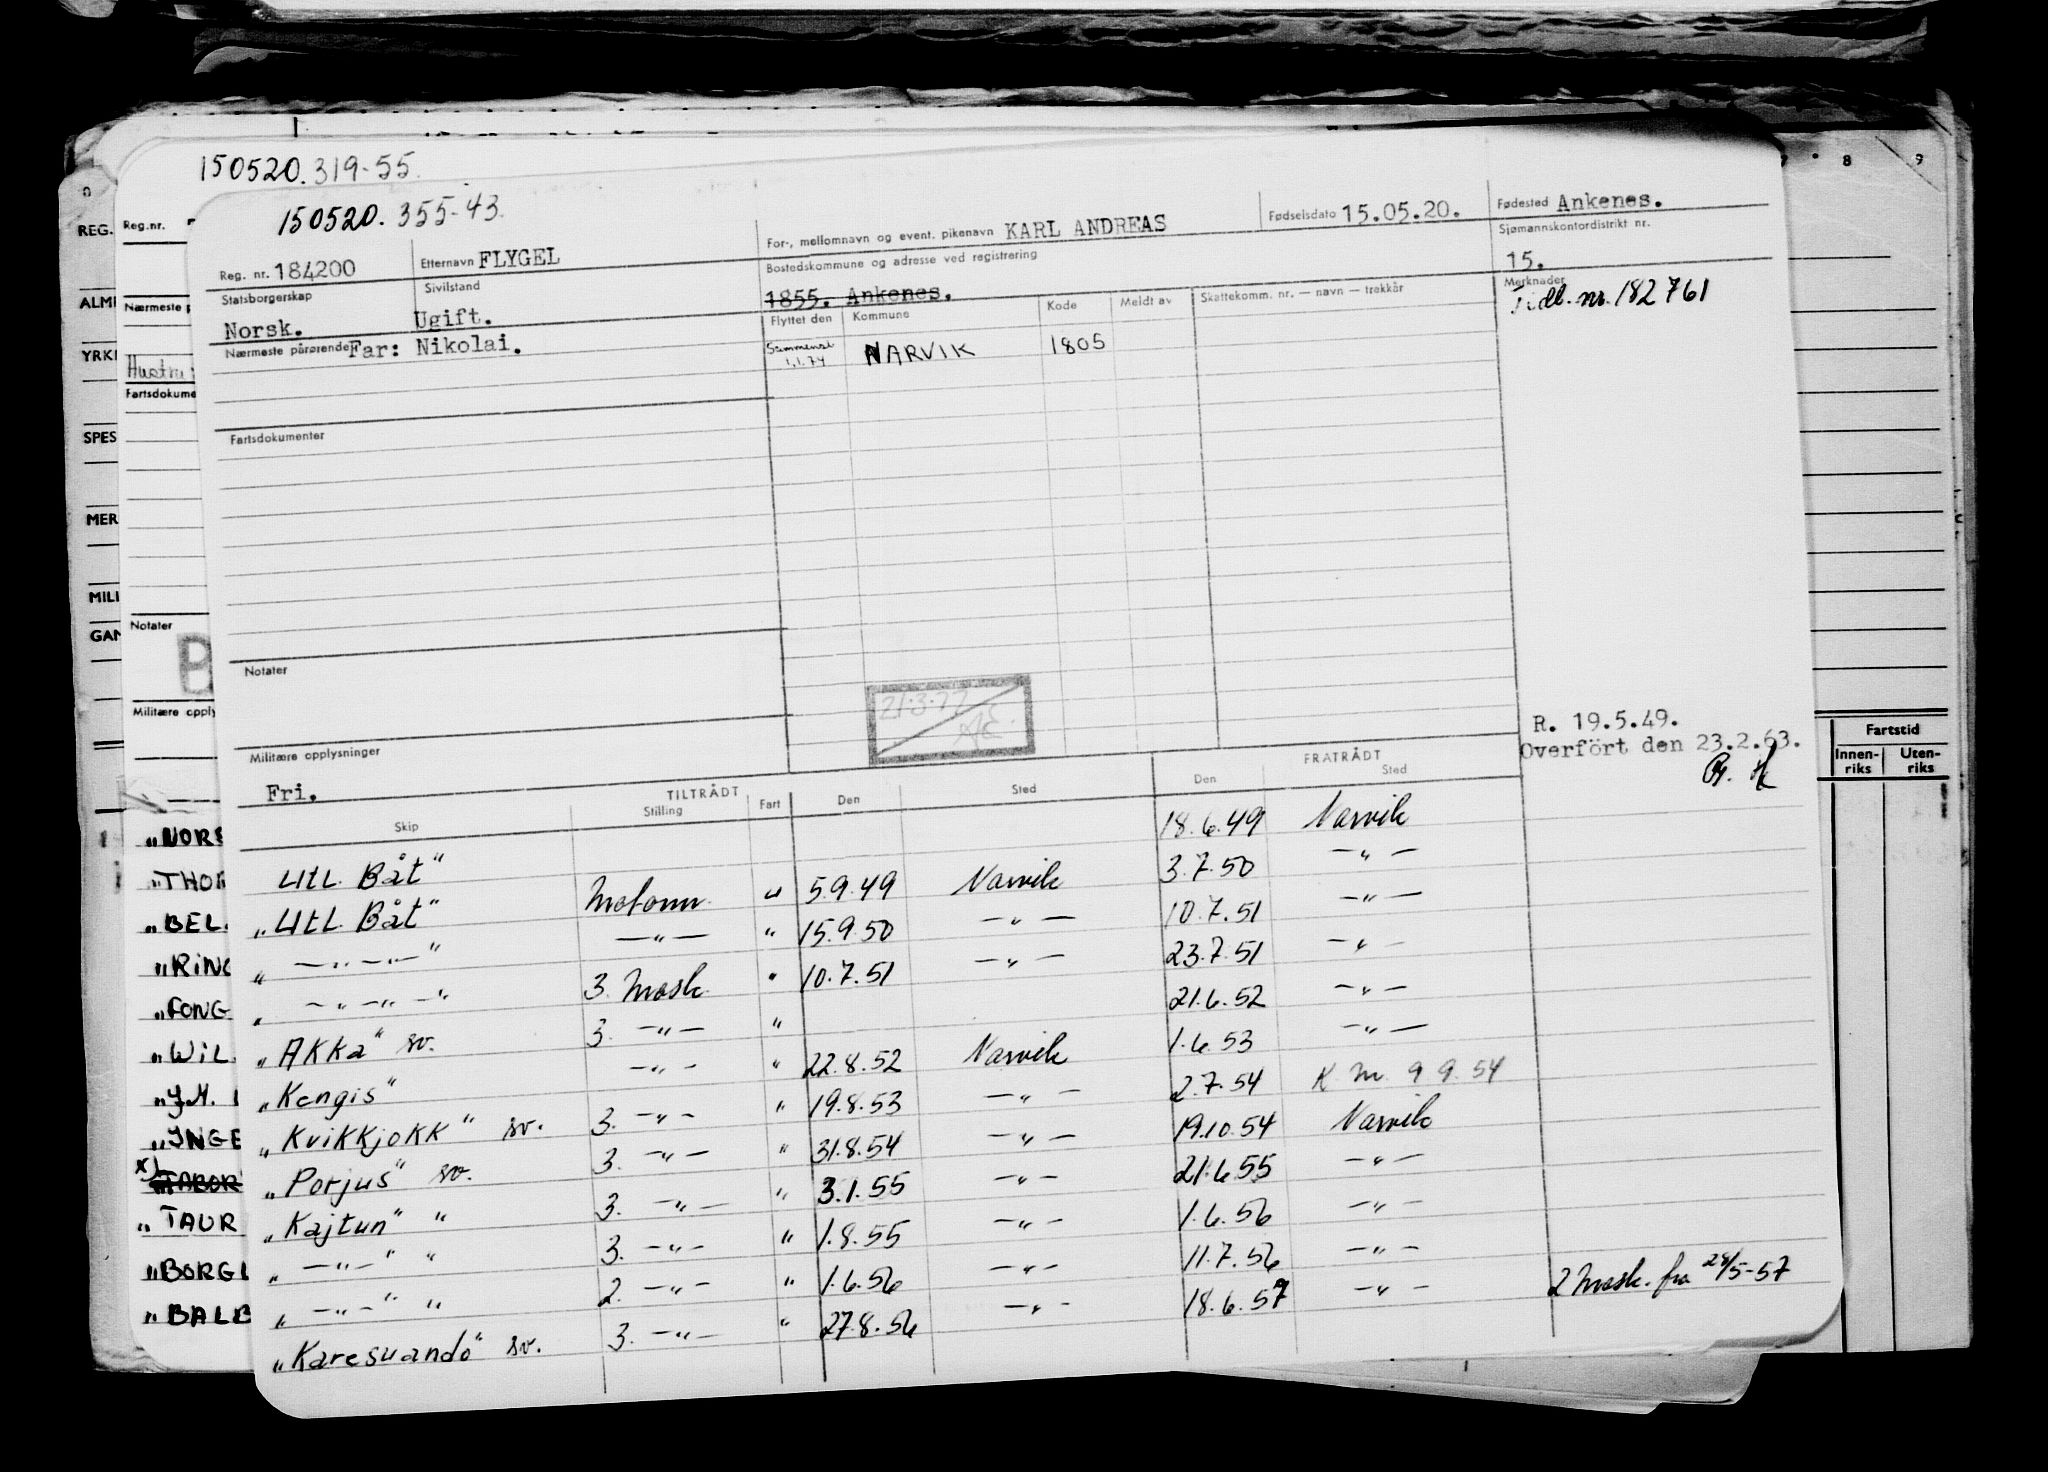 150520.319-55.
150520. 355-43.
Reg. nr. 184200 Etternavn FLYGEL For-, mellomnavn og event. pikenavn KARL ANDREAS Fødselsdato 15.05.20. Fødested Ankenes.
Statsborgerskap Norsk. Sivilstand Ugift. Bostedskommune og adresse ved registrering 1855. Ankenes. Sjømannskontordistrikt nr. 15.
Nærmeste pårørende Far: Nikolai. Flyttet den Kommune Kode Meldt av Skattekomm. nr. — navn — trekkår Merknader
Tidl. nr. 182761
Sammensl. 1.1.74 NARVIK 1805
Fartsdokumenter
Notater
21.3.77
Militære opplysninger
Fri.
R. 19.5.49.
Overført den 23.2.63.
TILTRÅDT FRATRÅDT
Skip Stilling Fart Den Sted Den Sted
Utl. Båt" 18.6.49 Narvik
„Utl. Båt" Motorm. " 5.9.49 Narvik 3.7.50 —"—
„ —"—"—" —"— " 15.9.50 —"— 10.7.51 —"—
„ —"—"—" 3. Mask. " 10.7.51 —"— 23.7.51 —"—
„AKKa" sv. 3. —"— " 21.6.52 —"—
„Kengis" —"— " 22.8.52 Narvik 1.6.53 —"—
„Kvikkjokk" sv. 3. —"— " 19.8.53 —"— 2.7.54 K. M. 9 9. 54
„Porjus" sv. 3. —"— " 31.8.54 —"— 19.10.54 Narvik
„Kajtun" " 3. —"— " 3.1.55 —"— 21.6.55 —"—
„ —"—" " 3. —"— " 1.8.55 —"— 1.6.56 —"—
„ —"—" " 2. —"— " 1.6.56 —"— 11.7.56 —"—
„Karesuando" sv. 3. —"— " 27.8.56 —"— 18.6.57 —"— 2 Mask. fra 28/5-57
Reg.nr.
Nærmeste p
Hustru:
Fartsdokume
Notater
Militære oppl
„NORS
„THOR
„BEL
„RING
„FONG
„WIL
„J.M.
„INGE
x) „TABOR
„TAUR
„BORGL
„BALB
REG.
ALM
YRK
SPES
MER
MILI
GAN
8 9
Fartstid
Innen-riks Uten-riks